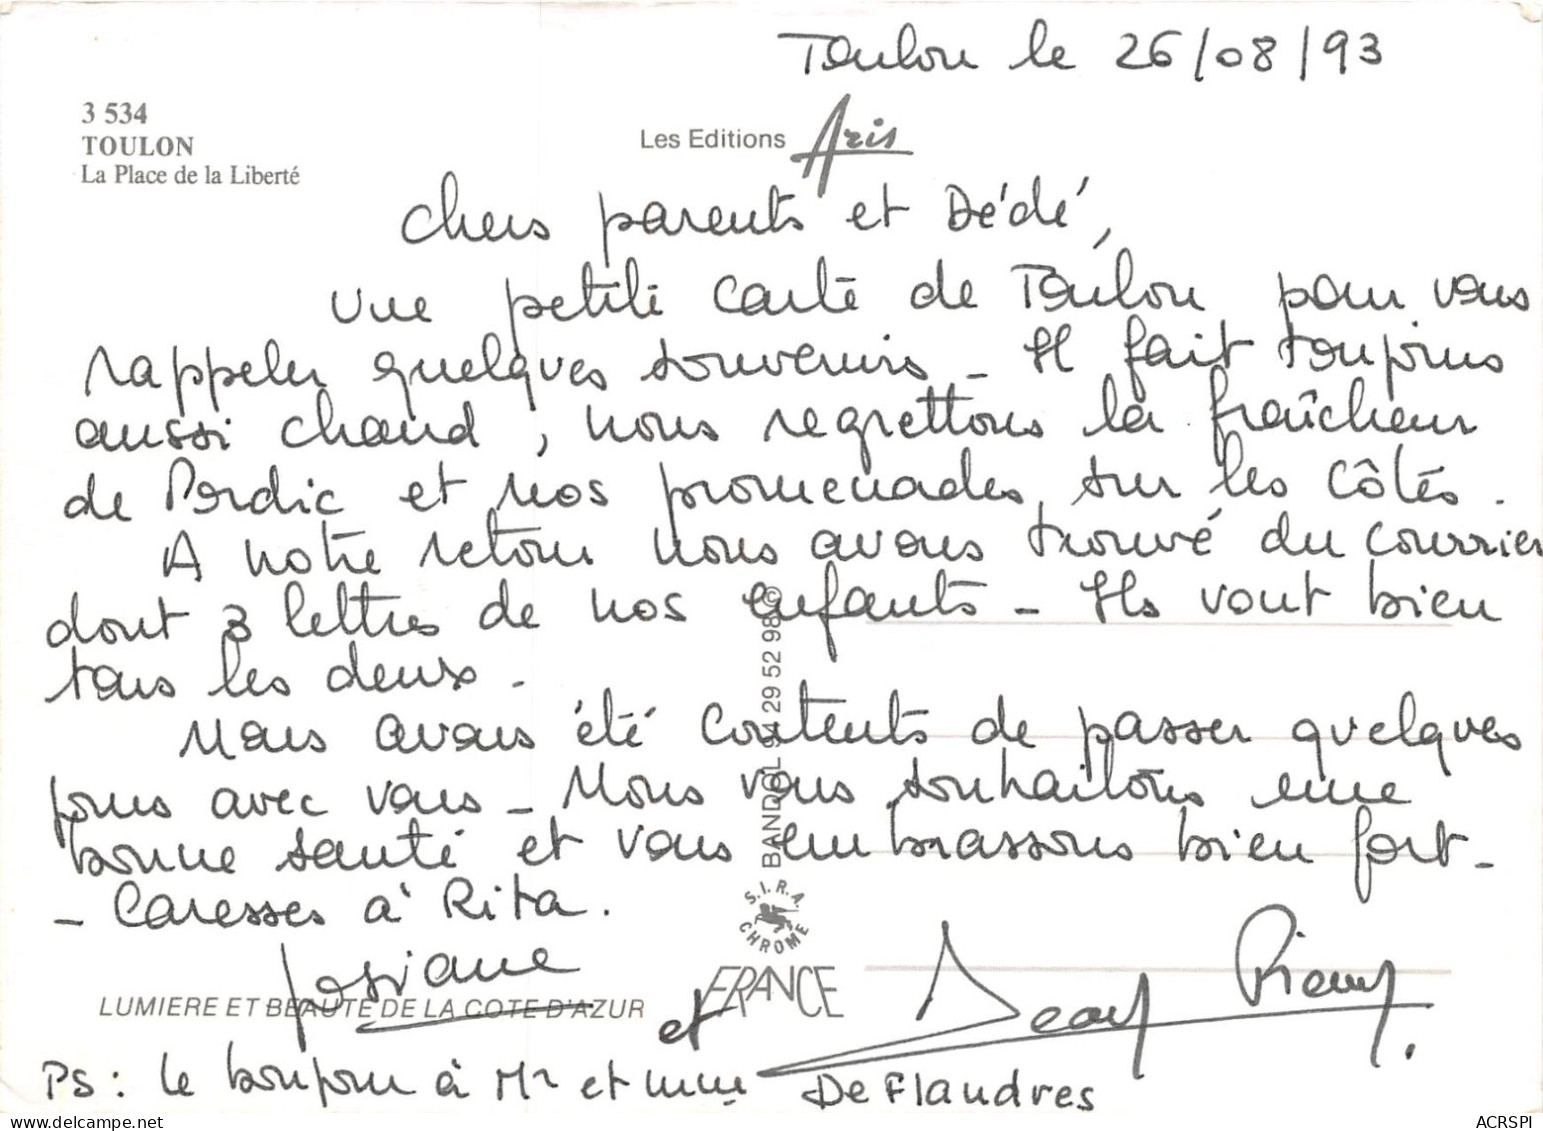 Toulon le 26/08/93
3 534
TOULON
La Place de la Liberté
Les Editions Aris
Chers parents et Dédé,
Une petite carte de Toulon pour vous
rappeler quelques souvenirs - Il fait toujours
aussi chaud, nous regrettons la fraîcheur
de Pordic et nos promenades sur les côtes.
A notre retour nous avons trouvé du courrier
dont 3 lettres de nos enfants - Ils vont bien
tous les deux.
Nous avons été contents de passer quelques
jours avec vous - Nous vous souhaitons une
bonne santé et vous embrassons bien fort -
- Caresses à Rita.
Josiane
et Jean Pierre.
BANDOL 94 29 52 98 ©
S.I.R.A.
CHROME
FRANCE
LUMIERE ET BEAUTE DE LA COTE D'AZUR
PS : le bonjour à Mr et Mme De Flandres
ACRSPI